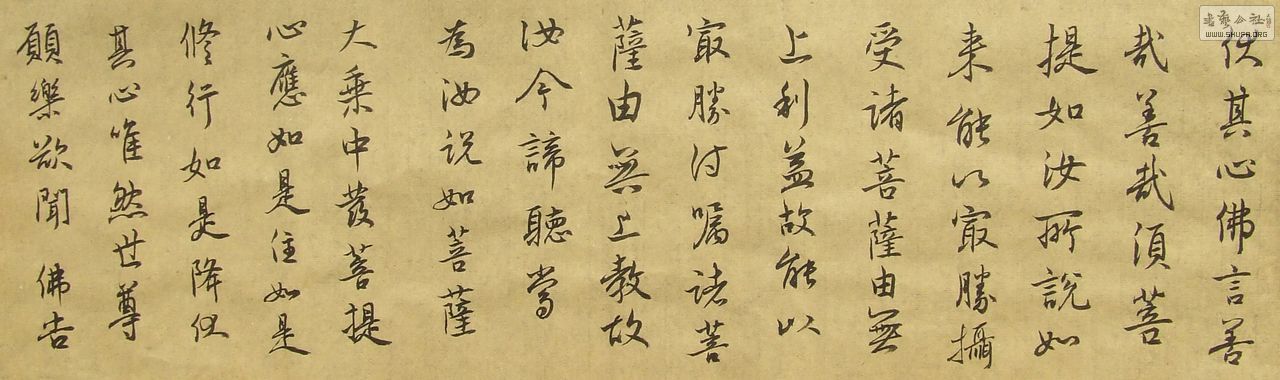 伏其心佛言善
哉善哉須菩
提如汝所說如
来能以冣勝攝
受諸菩薩由無
上利益故能以
冣勝付囑諸菩
薩由無上教故
汝今諦聽當
為汝说如菩薩
大乗中發菩提
心應如是住如是
修行如是降伏
其心唯然世尊
願樂欲聞 佛告
書藝公社
WWW.SHUFA.ORG